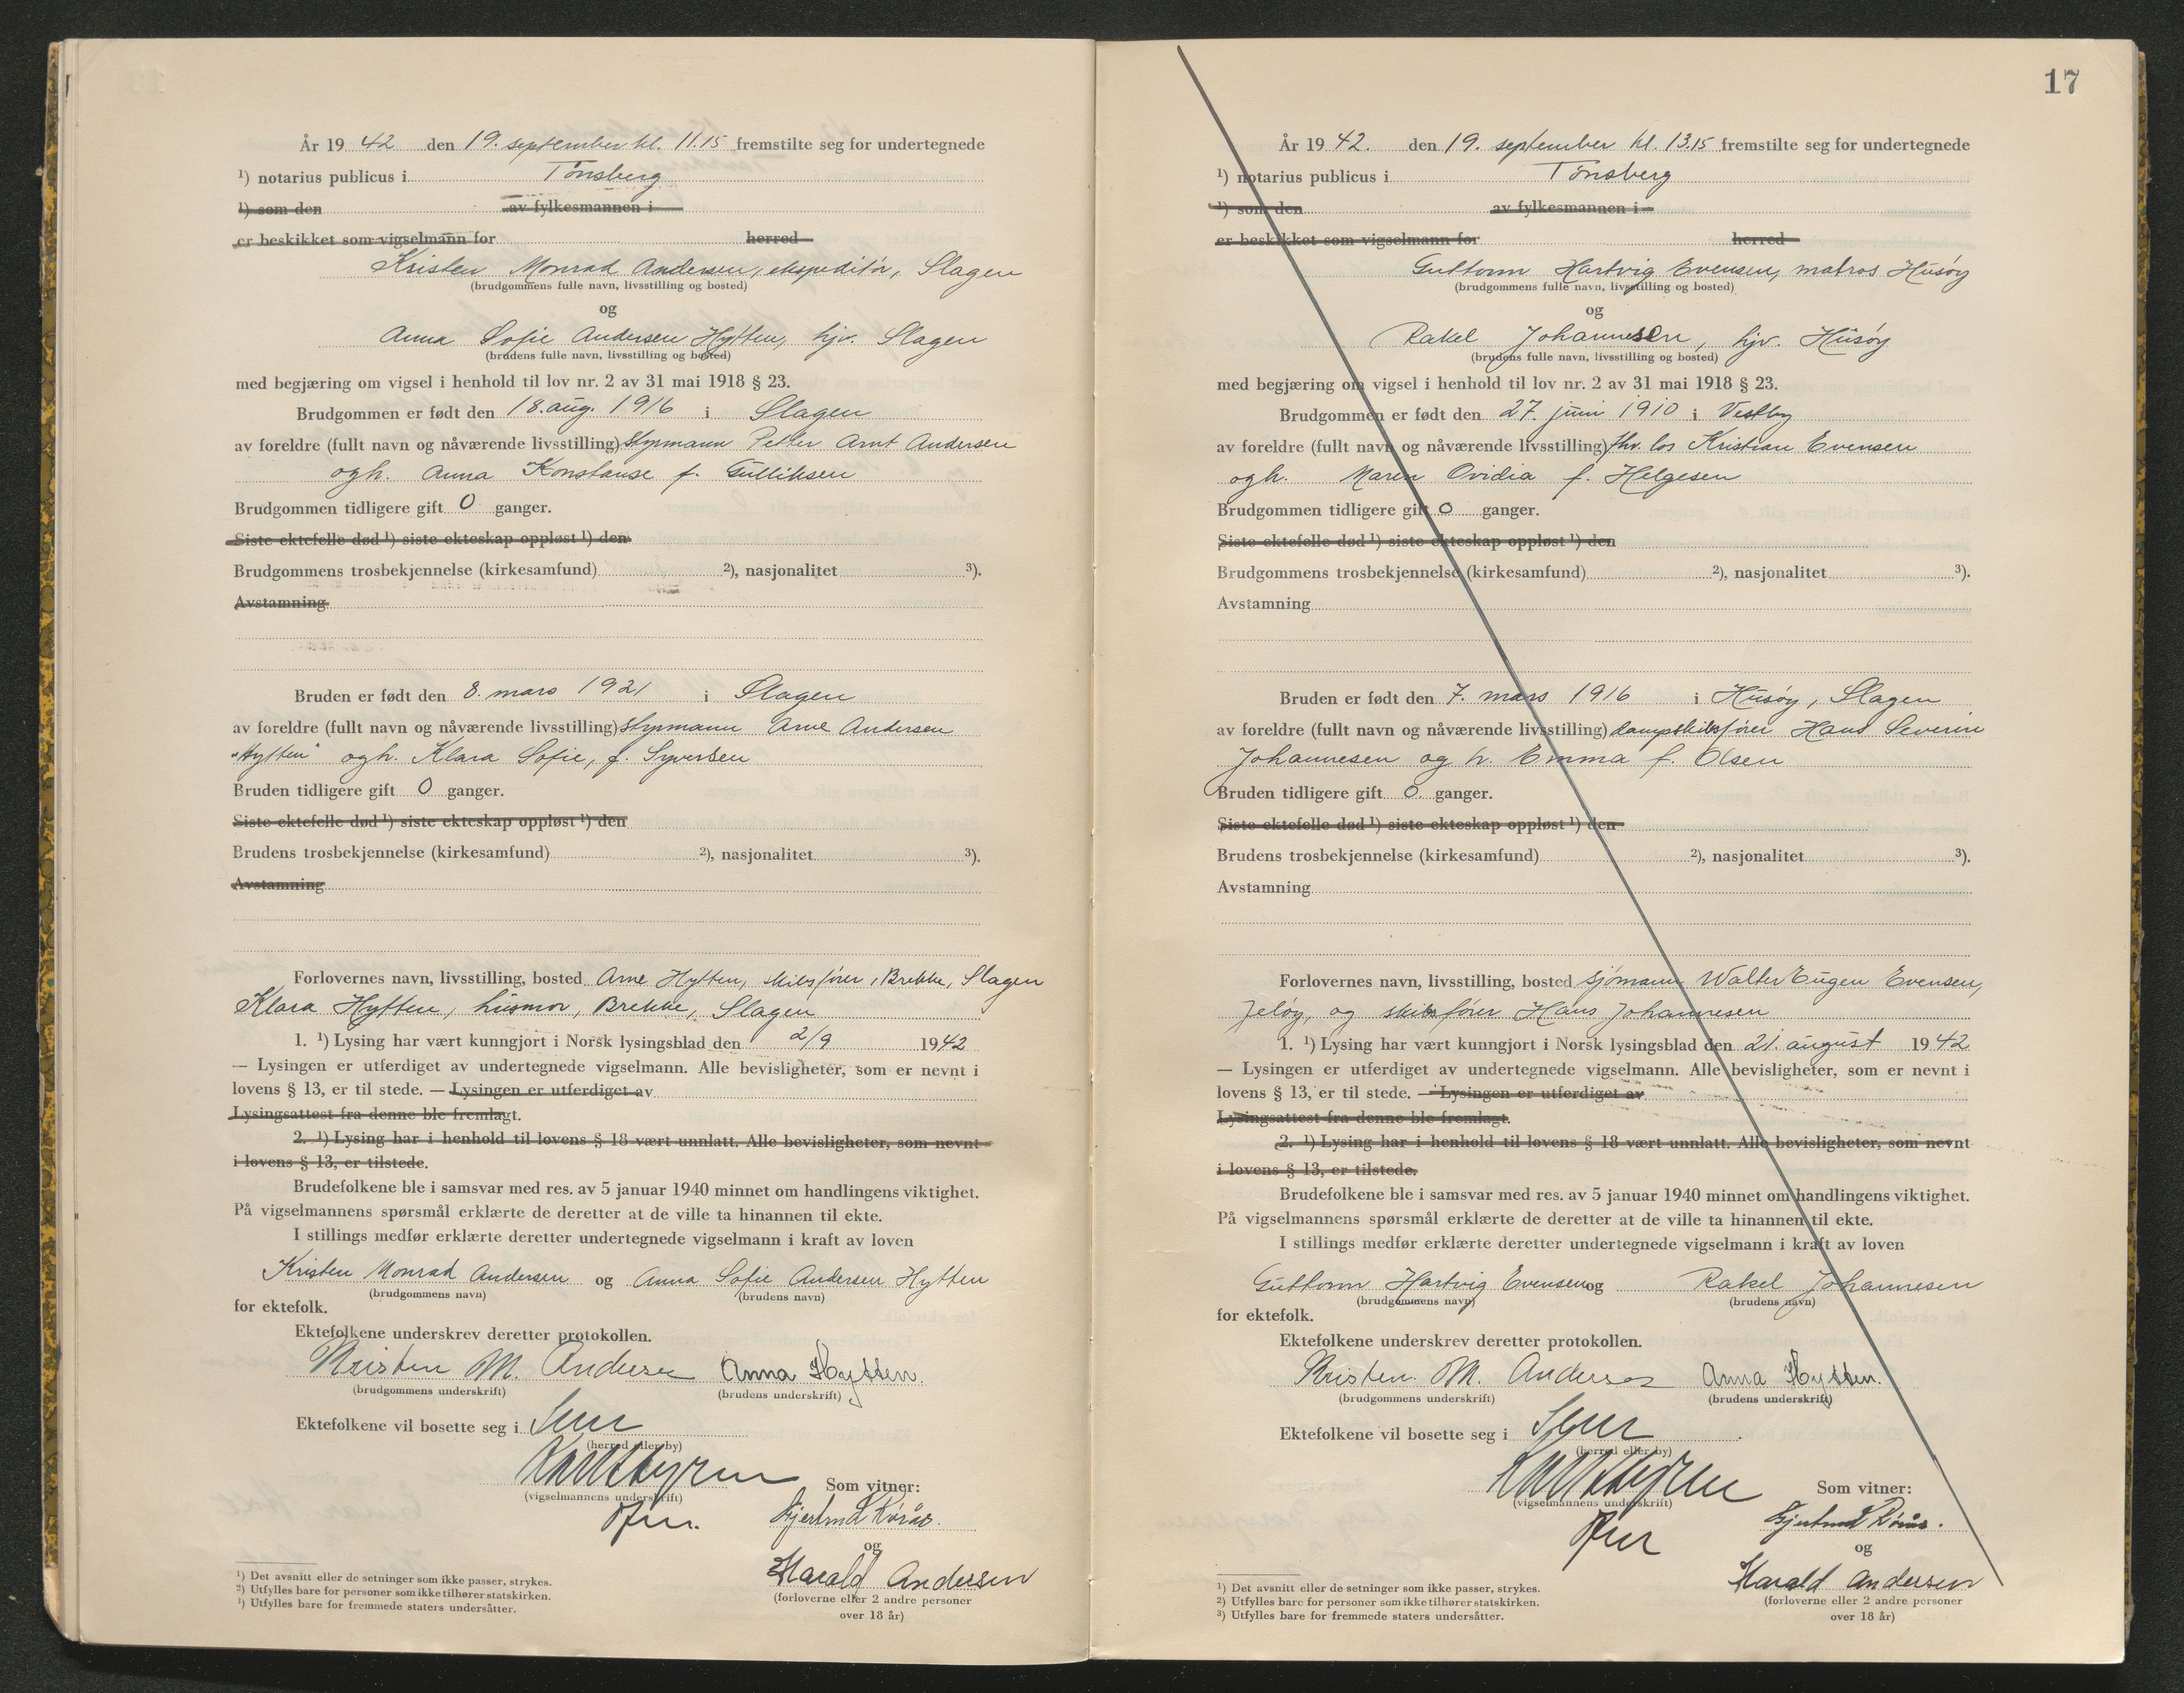 År 19 42 den 19. september kl. 11.15 fremstilte seg for undertegnede
¹) notarius publicus i Tönsberg
¹) som den av fylkesmannen i
er beskikket som vigselmann for herred
Kristen Monrad Andersen, ekspeditör, Slagen
(brudgommens fulle navn, livsstilling og bosted)
og
Anna Sofie Andersen Hytten, hjv. Slagen
(brudens fulle navn, livsstilling og bosted)
med begjæring om vigsel i henhold til lov nr. 2 av 31 mai 1918 § 23.
Brudgommen er født den 18. aug. 1916 i Slagen
av foreldre (fullt navn og nåværende livsstilling) Styrmann Petter Arnt Andersen
og h. Anna Konstanse f. Gulliksen
Brudgommen tidligere gift 0 ganger.
Siste ektefelle død ¹) siste ekteskap oppløst ¹) den
Brudgommens trosbekjennelse (kirkesamfund) ²), nasjonalitet ³).
Avstamning
Bruden er født den 8. mars 1921 i Slagen
av foreldre (fullt navn og nåværende livsstilling) Styrmann Arne Andersen
"Hytten" og h. Klara Sofie, f. Syversen
Bruden tidligere gift 0 ganger.
Siste ektefelle død ¹) siste ekteskap oppløst ¹) den
Brudens trosbekjennelse (kirkesamfund) ²), nasjonalitet ³).
Avstamning
Forlovernes navn, livsstilling, bosted Arne Hytten, skibsförer, Brekke, Slagen
Klara Hytten, husmor, Brekke, Slagen
1. ¹) Lysing har vært kunngjort i Norsk lysingsblad den 2/9 1942
— Lysingen er utferdiget av undertegnede vigselmann. Alle bevisligheter, som er nevnt i
lovens § 13, er til stede. — Lysingen er utferdiget av
Lysingsattest fra denne ble fremlagt.
2. ¹) Lysing har i henhold til lovens § 18 vært unnlatt. Alle bevisligheter, som nevnt
i lovens § 13, er tilstede.
Brudefolkene ble i samsvar med res. av 5 januar 1940 minnet om handlingens viktighet.
På vigselmannens spørsmål erklærte de deretter at de ville ta hinannen til ekte.
I stillings medfør erklærte deretter undertegnede vigselmann i kraft av loven
Kristen Monrad Andersen og Anna Sofie Andersen Hytten
(brudgommens navn) (brudens navn)
for ektefolk.
Ektefolkene underskrev deretter protokollen.
Kristen M. Andersen Anna Hytten.
(brudgommens underskrift) (brudens underskrift)
Ektefolkene vil bosette seg i Sem
(herred eller by)
(vigselmannens underskrift) Som vitner:
Gjertrud Rörås.
og
Harald Andersen
(forloverne eller 2 andre personer
over 18 år)
¹) Det avsnitt eller de setninger som ikke passer, strykes.
²) Utfylles bare for personer som ikke tilhører statskirken.
¹) Utfylles bare for fremmede staters undersåtter.
17
År 19 42. den 19. september kl. 13.15 fremstilte seg for undertegnede
¹) notarius publicus i Tönsberg
¹) som den av fylkesmannen i
er beskikket som vigselmann for herred
Guttorm Hartvig Evensen, matros Husöy
(brudgommens fulle navn, livsstilling og bosted)
og
Rakel Johannesen, hjv. Husöy
(brudens fulle navn, livsstilling og bosted)
med begjæring om vigsel i henhold til lov nr. 2 av 31 mai 1918 § 23.
Brudgommen er født den 27. juni 1910 i Vestby
av foreldre (fullt navn og nåværende livsstilling) fhv. los Kristian Evensen
og h. Maren Ovidia f. Helgesen
Brudgommen tidligere gift 0 ganger.
Siste ektefelle død ¹) siste ekteskap oppløst ¹) den
Brudgommens trosbekjennelse (kirkesamfund) ²), nasjonalitet ³).
Avstamning
Bruden er født den 7. mars 1916 i Husöy, Slagen
av foreldre (fullt navn og nåværende livsstilling) dampskibsförer Hans Severin
Johannesen og h. Emma f. Olsen
Bruden tidligere gift 0. ganger.
Siste ektefelle død ¹) siste ekteskap oppløst ¹) den
Brudens trosbekjennelse (kirkesamfund) ²), nasjonalitet ³).
Avstamning
Forlovernes navn, livsstilling, bosted sjömann Walter Eugen Evensen,
Jelöy, og skibsförer Hans Johannesen
1. ¹) Lysing har vært kunngjort i Norsk lysingsblad den 21. august 19 42
— Lysingen er utferdiget av undertegnede vigselmann. Alle bevisligheter, som er nevnt i
lovens § 13, er til stede. — Lysingen er utferdiget av
Lysingsattest fra denne ble fremlagt.
2. ¹) Lysing har i henhold til lovens § 18 vært unnlatt. Alle bevisligheter, som nevnt
i lovens § 13, er tilstede.
Brudefolkene ble i samsvar med res. av 5 januar 1940 minnet om handlingens viktighet.
På vigselmannens spørsmål erklærte de deretter at de ville ta hinannen til ekte.
I stillings medfør erklærte deretter undertegnede vigselmann i kraft av loven
Guttorm Hartvig Evensen og Rakel Johannesen
(brudgommens navn) (brudens navn)
for ektefolk.
Ektefolkene underskrev deretter protokollen.
Kristen. M. Andersen Anna Hytten.
(brudgommens underskrift) (brudens underskrift)
Ektefolkene vil bosette seg i Sem
(herred eller by)
(vigselmannens underskrift) Som vitner:
Gjertrud Rörås.
og
Harald Andersen
(forloverne eller 2 andre personer
over 18 år)
¹) Det avsnitt eller de setninger som ikke passer, strykes.
²) Utfylles bare for personer som ikke tilhører statskirken.
³) Utfylles bare for fremmede staters undersåtter.